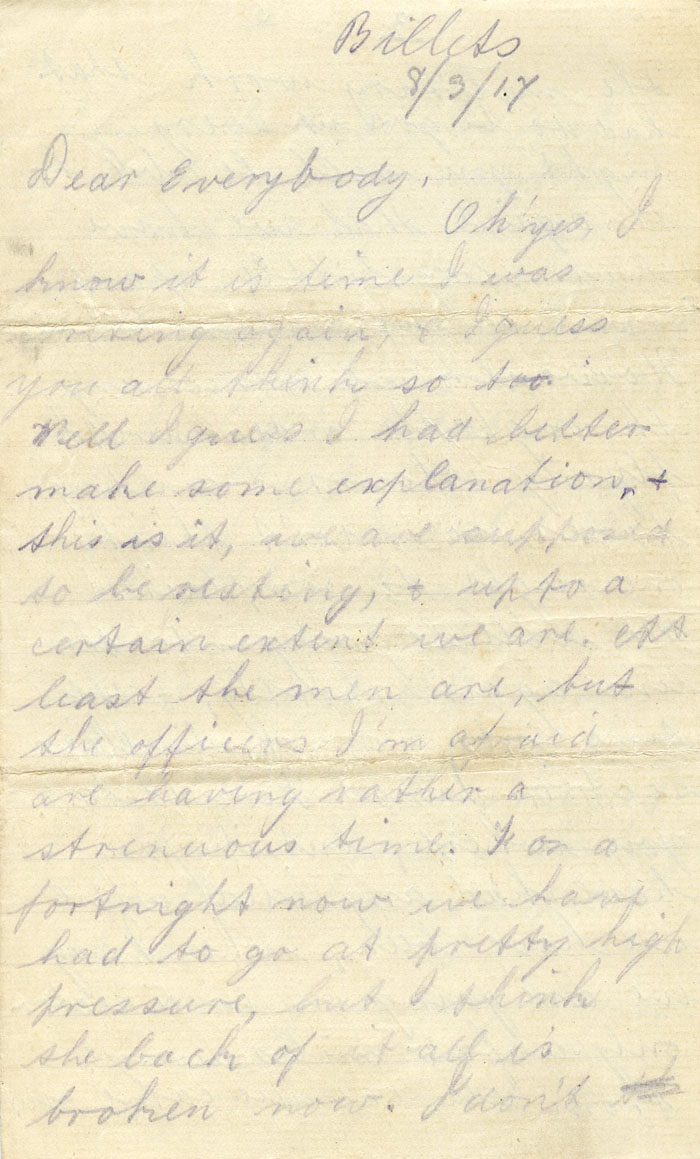 Billets
8/3/17
Dear Everybody,
Oh yes, I
know it is time I was
writing again, & I guess
you all think so too.
Well I guess I had better
make some explanation, +
this is it, we are supposed
to be resting, & up to a
certain extent we are. At
least the men are, but
the officers I'm afraid
are having rather a
strenuous time. For a
fortnight now we have
had to go at pretty high
pressure, but I think
the back of it all is
broken now. I don't